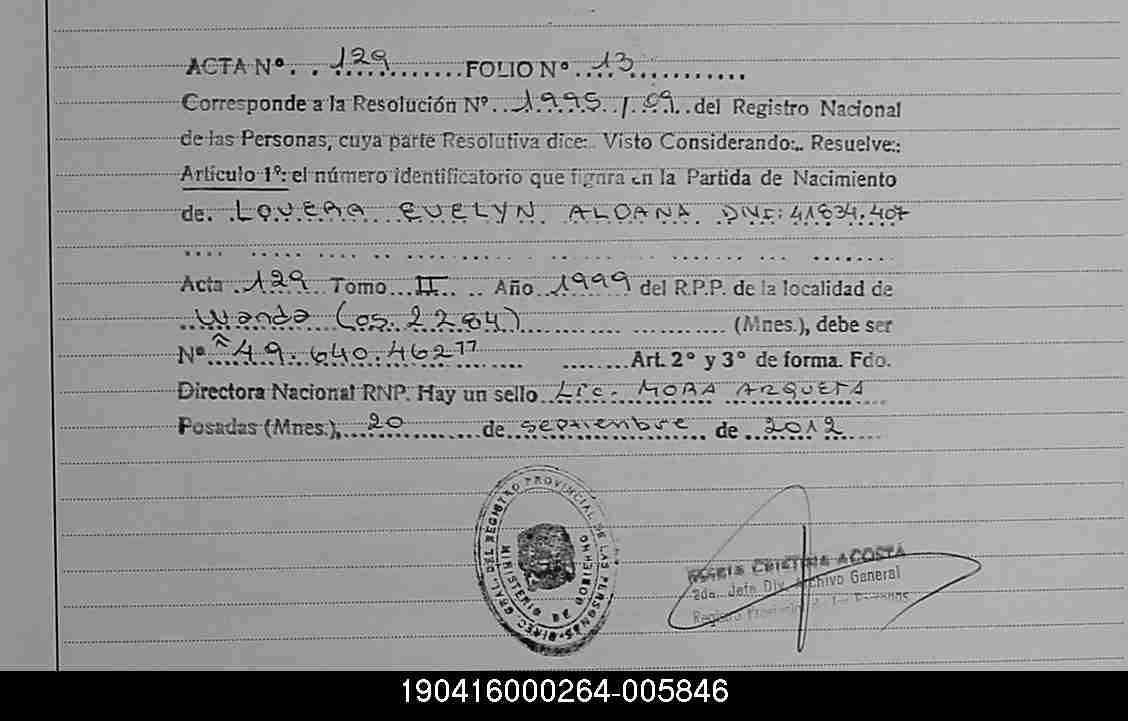 ACTA Nº. . 129 ............ FOLIO Nº .... 13 ...........
Corresponde a la Resolución Nº... 1995 / 09 .. del Registro Nacional
de las Personas, cuya parte Resolutiva dice:. Visto Considerando:. Resuelve:
Artículo 1º: el número identificatorio que figura en la Partida de Nacimiento
de. LOVERA EVELYN ALDANA DNI: 41834.407
Acta . 129 Tomo ... II .. .. Año . 1999 del R.P.P. de la localidad de
Wanda (os. 2284) ............ (Mnes.), debe ser
Nº " 49.640.462 " ........ Art. 2º y 3º de forma. Fdo.
Directora Nacional RNP. Hay un sello .. Lic. MORA ARQUETA
Posadas (Mnes.), .. 20 ........ de septiembre .. de .. 2012
DIREC. GRAL. DEL REGISTRO PROVINCIAL DE LAS PERSONAS
MINISTERIO DE GOBIERNO
MARIA CRISTINA ACOSTA
2da. Jefa Div. Archivo General
Registro Provincial de las Personas
190416000264-005846